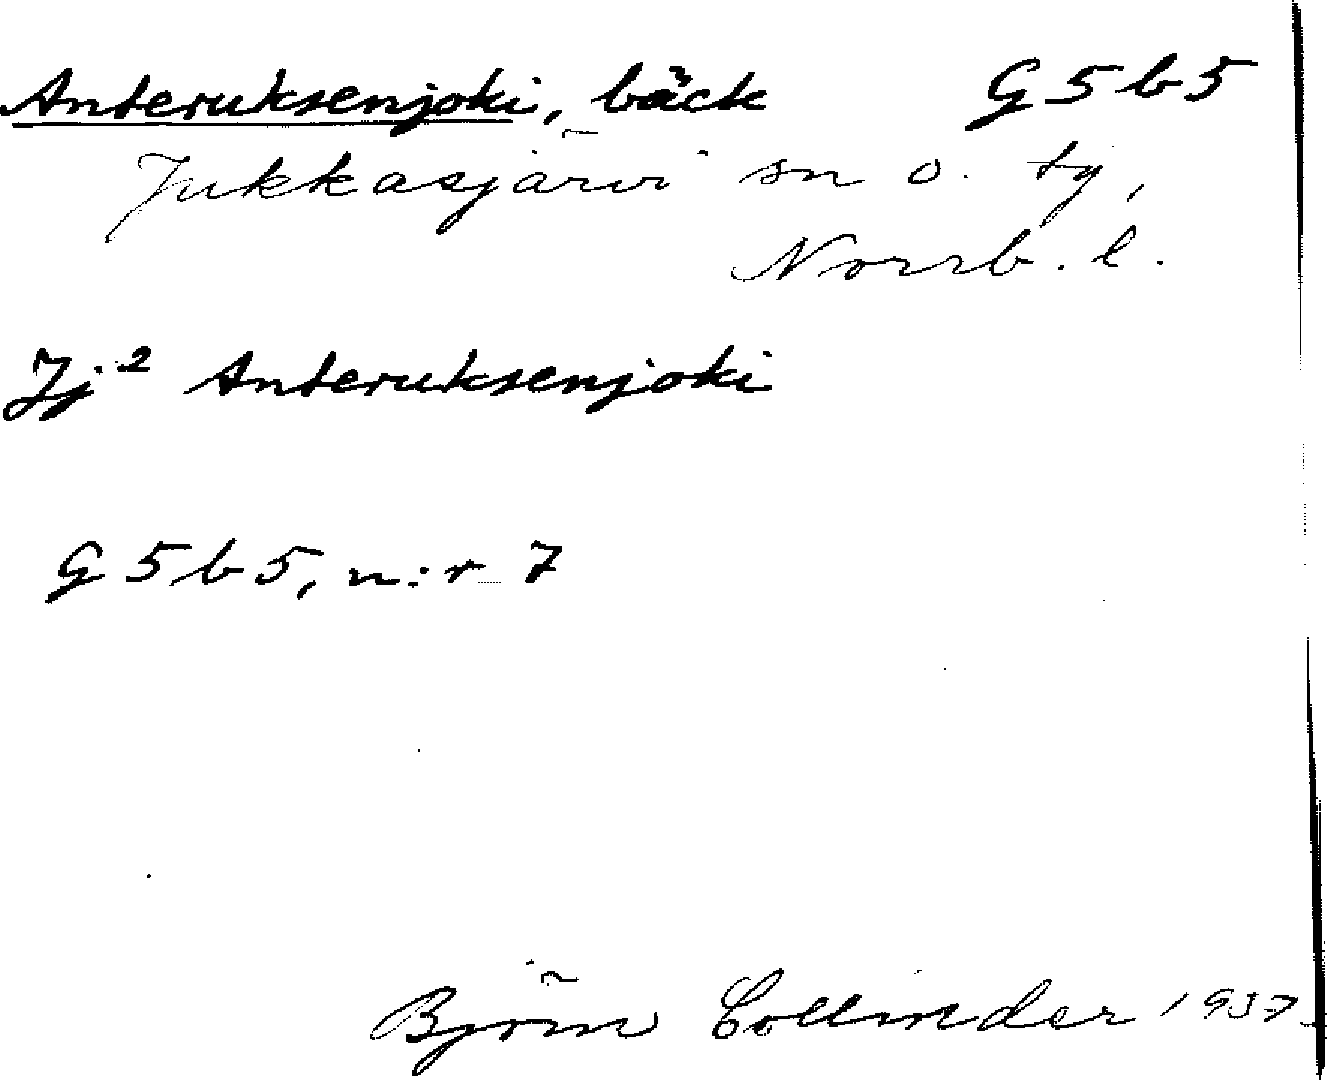 Anteruksenjoki, bäck G5b5
Jukkasjärvi sn o. tg,
Norrb. l.
Jj² Anteruksenjoki
G5b5, n:r 7
Björn Collinder 1937